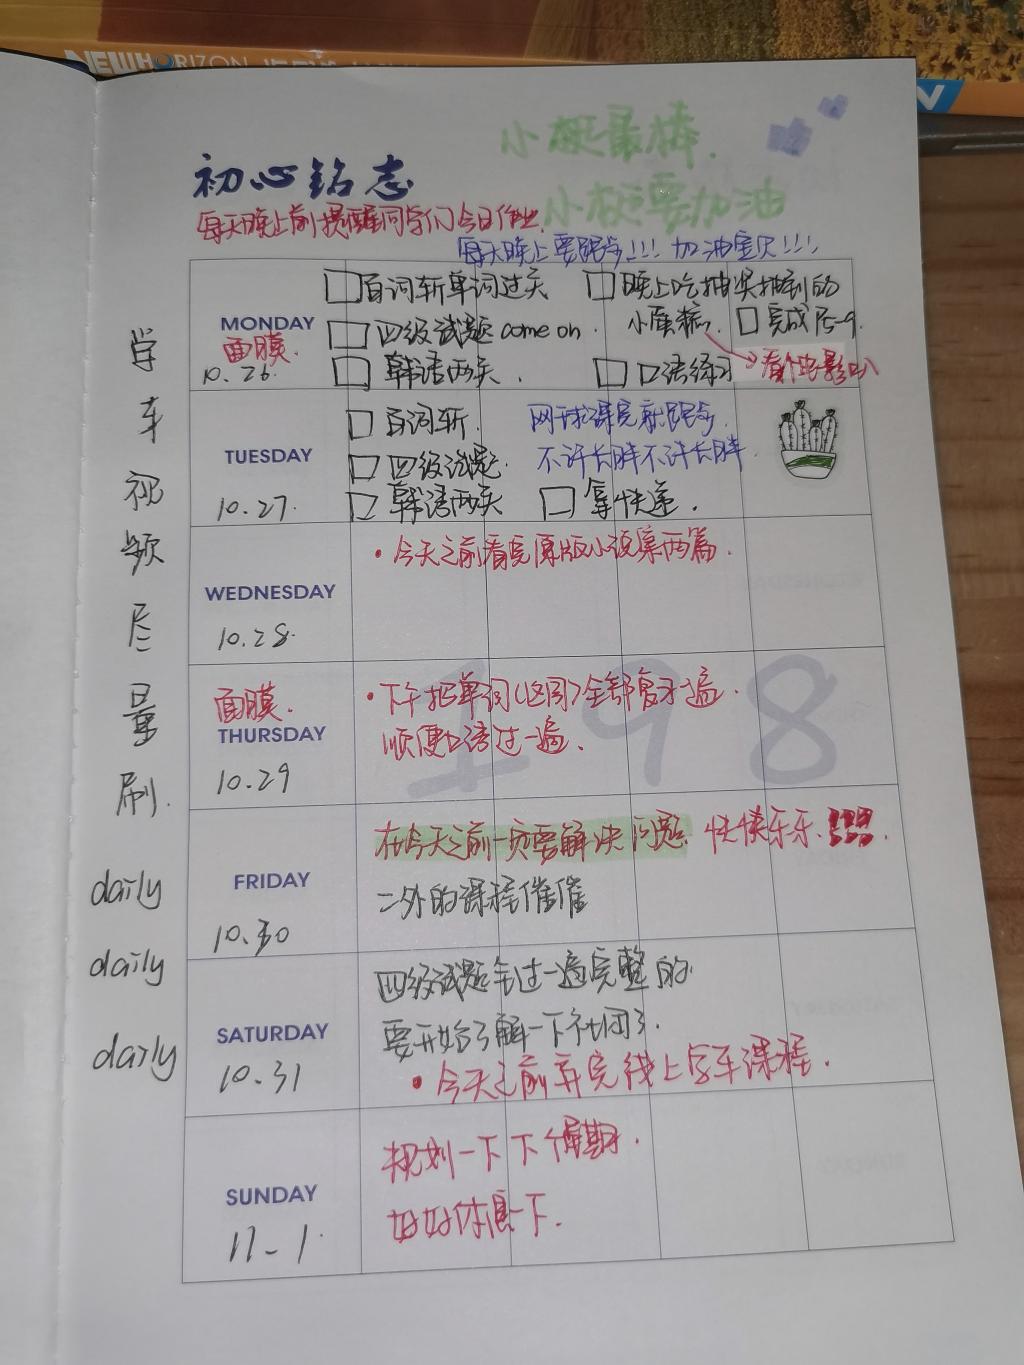 NEW HORIZON
小 最棒.
初心铭志
小 要加油
每天晚上前提醒同学们今日作业.
每天晚上要跑步!!! 加油宝贝!!!
MONDAY
面膜.
10.26.
□百词斩单词过关
□晚上吃抽奖抽到的
小蛋糕.
□四级试题 come on.
□完成P5-9.
□韩语两关.
□口语练习
→看个电影叭
TUESDAY
10.27.
□百词斩.
网球课完就跑步.
□四级试题.
不许长胖不许长胖.
□韩语两关
□拿快递.
WEDNESDAY
10.28.
·今天之前看完原版小说集两篇.
面膜.
THURSDAY
10.29
·下午把单词(这周)全部复习一遍.
顺便口语过一遍.
198
FRIDAY
10.30
在今天之前一定要解决问题. 快快乐乐.
二外的课程催催
SATURDAY
10.31
四级试题全过一遍完整的.
要开始了解一下社团了.
·今天之前弄完线上学车课程.
SUNDAY
11-1.
规划一下下个星期.
好好休息一下.
学
车
视
频
尽
量
刷.
daily
daily
daily